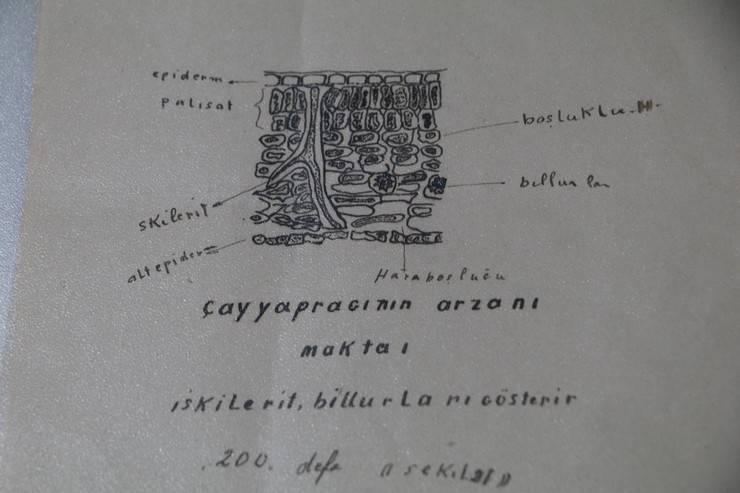 epiderm
palisat
boşluklu. H.
billurlar
skilerit
alt epiderm
Hava boşluğu
Çay yapracının arzanı
maktaı
iskilerit, billurları gösterir
200. defa